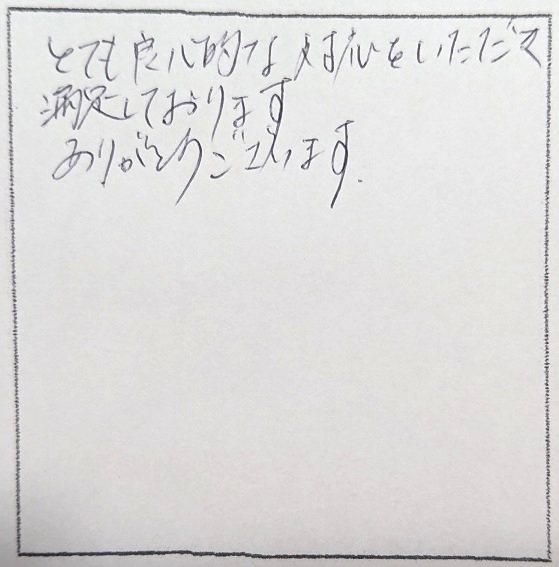 とても良心的な対応をいただきて
満足しております
ありがとうございます.